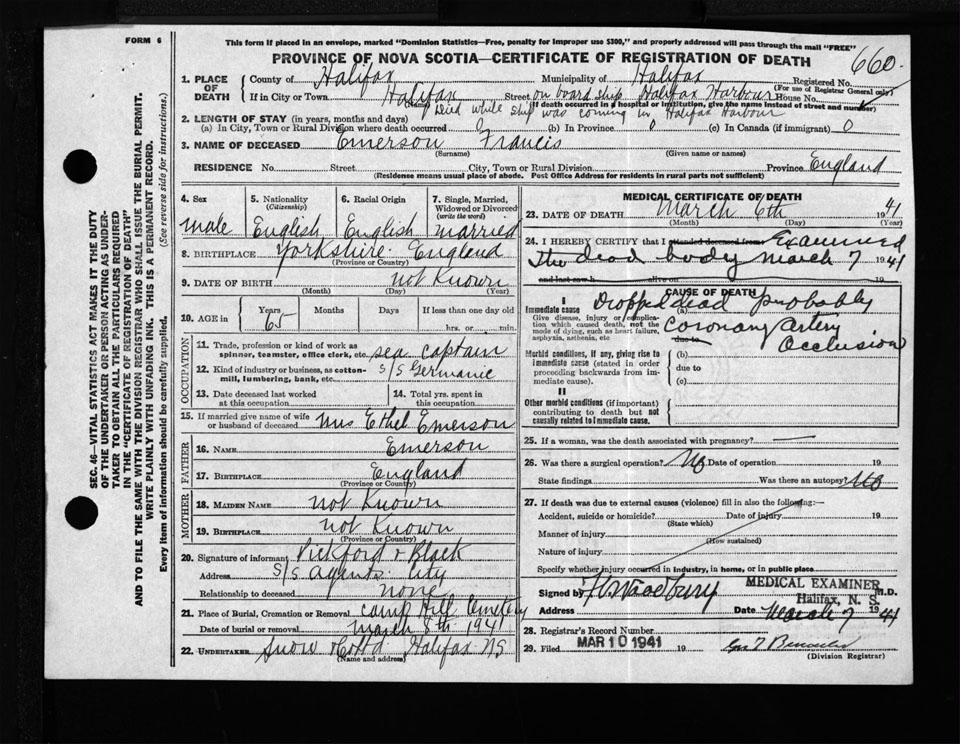 FORM 6
This form if placed in an envelope, marked "Dominion Statistics—Free, penalty for improper use $300," and properly addressed will pass through the mail "FREE"
PROVINCE OF NOVA SCOTIA—CERTIFICATE OF REGISTRATION OF DEATH
660
1. PLACE OF DEATH County of Halifax Municipality of Halifax Registered No.
(For use of Registrar General only)
If in City or Town Halifax Street on board ship Halifax Harbour House No.
If death occurred in a hospital or institution, give the name instead of street and number
Died while ship was coming in Halifax Harbour
2. LENGTH OF STAY (in years, months and days)
(a) In City, Town or Rural Division where death occurred 0 (b) In Province 0 (c) In Canada (if immigrant) 0
3. NAME OF DECEASED Emerson Francis
(Surname) (Given name or names)
RESIDENCE No. Street City, Town or Rural Division Province England
(Residence means usual place of abode. Post Office Address for residents in rural parts not sufficient)
4. Sex Male
5. Nationality (Citizenship) English
6. Racial Origin English
7. Single, Married, Widowed or Divorced (write the word) Married
8. BIRTHPLACE Yorkshire England
(Province or Country)
9. DATE OF BIRTH not Known
(Month) (Day) (Year)
10. AGE in Years 65 Months Days If less than one day old
hrs. or min.
OCCUPATION
11. Trade, profession or kind of work as spinner, teamster, office clerk, etc. sea captain
12. Kind of industry or business, as cotton-mill, lumbering, bank, etc. S/S Germanic
13. Date deceased last worked at this occupation
14. Total yrs. spent in this occupation
15. If married give name of wife or husband of deceased Mrs Ethel Emerson
FATHER
16. NAME Emerson
17. BIRTHPLACE England
(Province or Country)
MOTHER
18. MAIDEN NAME not Known
19. BIRTHPLACE not Known
(Province or Country)
20. Signature of informant Pickford & Black
Address S/S agents city
Relationship to deceased none
21. Place of Burial, Cremation or Removal Camp Hill Cemetery
Date of burial or removal March 8th 1941
22. UNDERTAKER Snow & Co Ltd Halifax NS
(Name and address)
MEDICAL CERTIFICATE OF DEATH
23. DATE OF DEATH March 6th 1941
(Month) (Day) (Year)
24. I HEREBY CERTIFY that I attended deceased from Examined
The dead body March 7 1941
and last saw h alive on 19
CAUSE OF DEATH
I
Immediate cause (a) Dropped dead probably
Give disease, injury or complication which caused death, not the mode of dying, such as heart failure, asphyxia, asthenia, etc
due to
Coronary artery
Occlusion
Morbid conditions, if any, giving rise to immediate cause (stated in order proceeding backwards from immediate cause).
(b)
due to
(c)
II
Other morbid conditions (if important) contributing to death but not causally related to immediate cause.
25. If a woman, was the death associated with pregnancy? —
26. Was there a surgical operation? No Date of operation 19
State findings Was there an autopsy? No
27. If death was due to external causes (violence) fill in also the following:—
Accident, suicide or homicide? Date of injury 19
(State which)
Manner of injury
(How sustained)
Nature of injury
Specify whether injury occurred in industry, in home, or in public place
Signed by M.D.
MEDICAL EXAMINER
Halifax, N. S.
Address Date March 7 1941
28. Registrar's Record Number
29. Filed MAR 10 1941 19
(Division Registrar)
SEC. 46—VITAL STATISTICS ACT MAKES IT THE DUTY
OF THE UNDERTAKER OR PERSON ACTING AS UNDER-
TAKER TO OBTAIN ALL THE PARTICULARS REQUIRED
IN THE "CERTIFICATE OF REGISTRATION OF DEATH"
AND TO FILE THE SAME WITH THE DIVISION REGISTRAR WHO SHALL ISSUE THE BURIAL PERMIT.
WRITE PLAINLY WITH UNFADING INK. THIS IS A PERMANENT RECORD.
Every item of information should be carefully supplied. (See reverse side for instructions.)